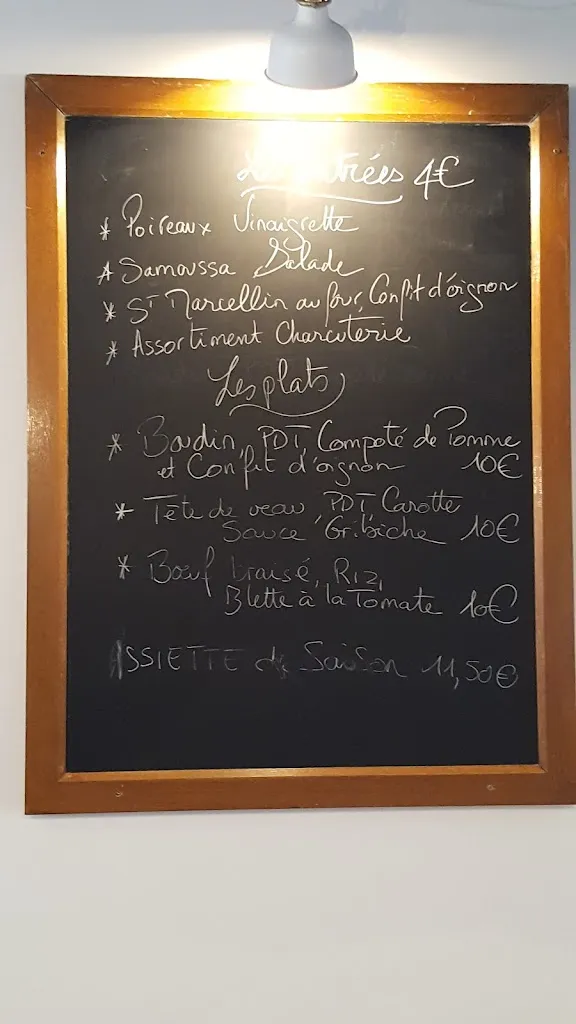 Les Entrées 4€
* Poireaux Vinaigrette
* Samoussa Salade
* St Marcellin au four, Confit d'oignon
* Assortiment Charcuterie
Les plats
* Boudin, PDT, Compoté de Pomme
et Confit d'oignon 10€
* Tête de veau, PDT, Carotte
Sauce Gribiche 10€
* Bœuf braisé, Riz,
Blette à la Tomate 10€
ASSIETTE de Saison 11,50€